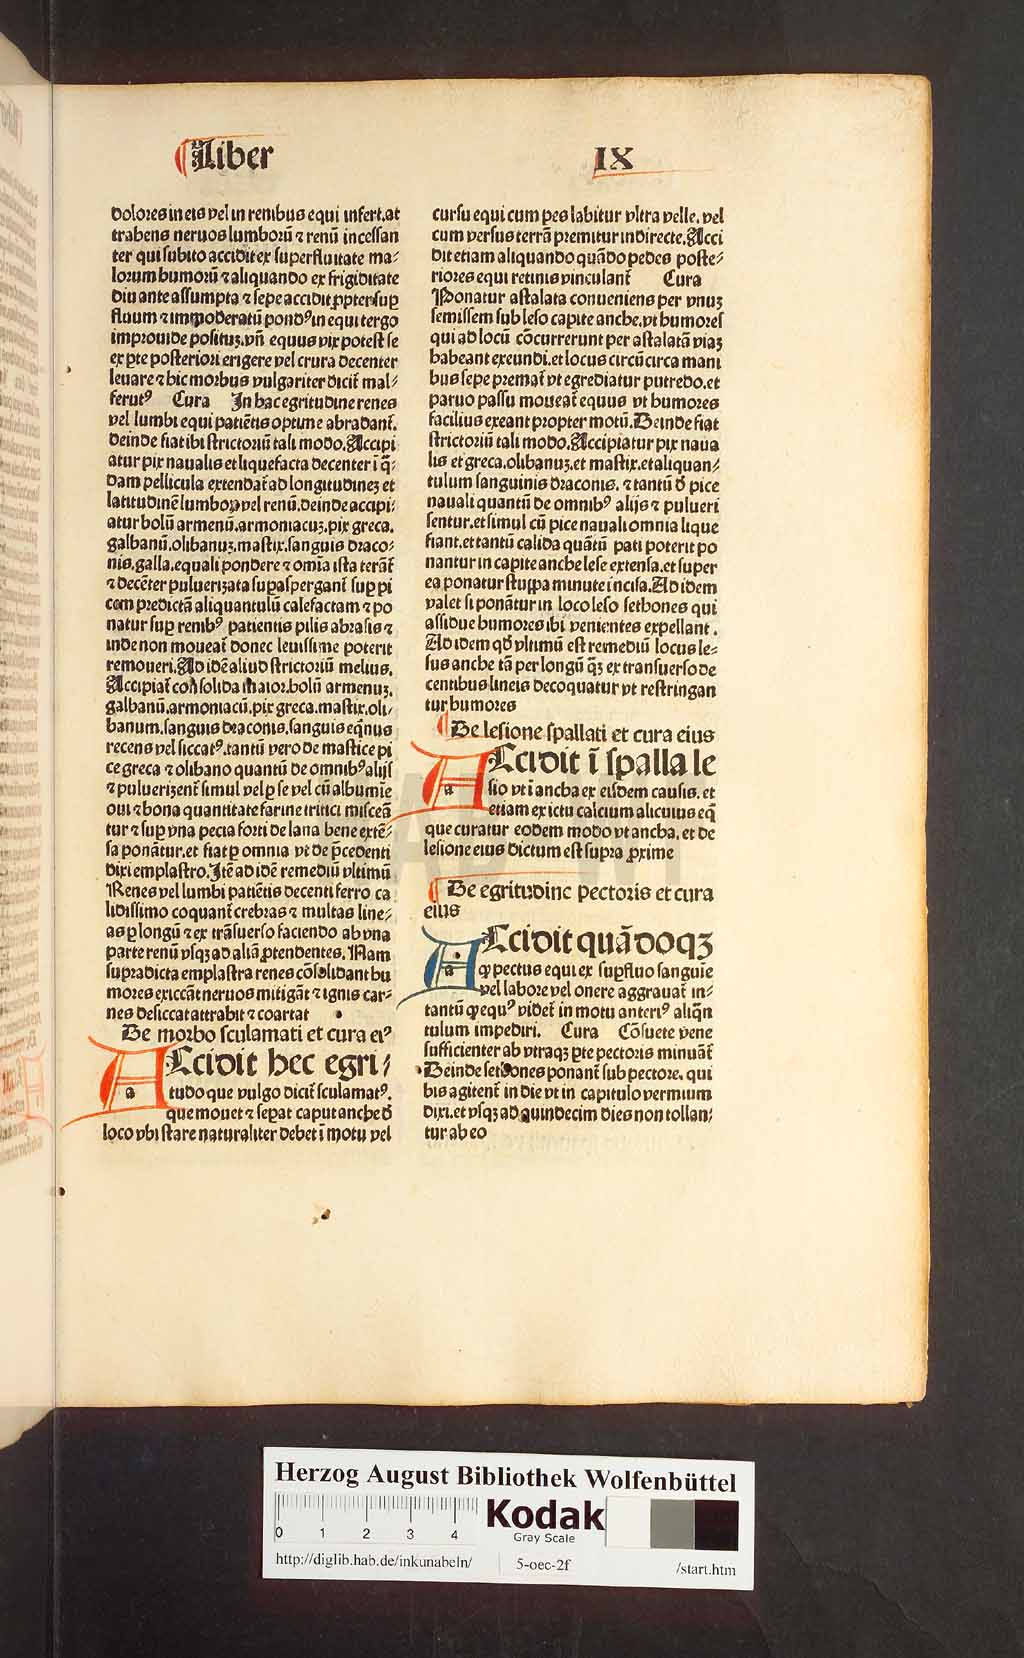 Liber
IX
dolores in eis vel in renibus equi infert. at
trahens neruos lumborũ ⁊ renũ incessan
ter qui subito accidit ex superfluitate ma⸗
lorum humorũ ⁊ aliquando ex frigiditate
diu ante assumpta ⁊ sepe accidit ꝓpter suꝑ
fluum ⁊ immoderatũ pondꝰ in equi tergo
improuide posituʒ. vñ equus vix potest se
ex ꝑte posteriori erigere vel crura decenter
leuare ⁊ hic morbus vulgariter dicit̃ mal⸗
ferutꝰ Cura In hac egritudine renes
vel lumbi equi patiẽtis optime abradant̃.
deinde fiat ibi strictoriũ tali modo. Accipi
atur pix naualis et liquefacta decenter ĩ q̃⸗
dam pellicula extendat̃ ad longitudineʒ et
latitudinẽ lumboꝝ vel renũ. deinde accipi⸗
atur bolũ armenũ. armoniacuʒ. pix greca.
galbanũ. olibanuʒ. mastix. sanguis draco⸗
nis. galla. equali pondere ⁊ om̃ia ista terãt̃
⁊ decẽter puluerizata supaspergant̃ suꝑ pi
cem predictã aliquantulũ calefactam ⁊ po
natur suꝑ renibꝰ patientis pilis abrasis ⁊
inde non moueat̃ donec leuissime poterit
remoueri. Ad idẽ aliud strictoriũ melius.
Accipiat̃ consolida maior. bolũ armenuʒ.
galbanũ. armoniacũ. pix greca. mastix. oli⸗
banum. sanguis draconis. sanguis eq̃nus
recens vel siccatꝰ. tantũ vero de mastice pi
ce greca ⁊ olibano quantũ de omnibꝰ alijs
⁊ puluerizent̃ simul vel ꝑ se vel cũ albumĩe
oui ⁊ bona quantitate farine tritici misceã
tur ⁊ suꝑ vna pecia forti de lana bene extẽ⸗
sa ponãtur. et fiat ꝑ omnia vt de p̃cedenti
dixi emplastro. Itẽ ad idẽ remediũ vltimũ
Renes vel lumbi patiẽtis decenti ferro ca
lidissimo coquant̃ crebras ⁊ multas line⸗
as ꝑ longũ ⁊ ex trãsuerso faciendo ab vna
parte renũ vsqʒ ad aliã ꝓtendentes. Nam
supradicta emplastra renes cõsolidant hu
mores exiccãt neruos mitigãt ⁊ ignis car⸗
nes desiccat attrahit ⁊ coartat
De morbo sculamati et cura eiꝰ
Accidit hec egri⸗
tudo que vulgo dicit̃ sculamatꝰ.
que mouet ⁊ sepat caput anche đ
loco vbi stare naturaliter debet ĩ motu vel
cursu equi cum pes labitur vltra velle. vel
cum versus terrã premitur indirecte. Acci
dit etiam aliquando quãdo pedes poste⸗
riores equi retinis vinculant̃ Cura
Ponatur astalata conueniens per vnuʒ
semissem sub leso capite anche. vt humores
qui ad locũ cõcurrerunt per astalatã viaʒ
habeant exeundi. et locus circũcirca mani
bus sepe premat̃ vt egrediatur putredo. et
paruo passu moueat̃ equus vt humores
facilius exeant propter motũ. Deinde fiat
strictoriũ tali modo. Accipiatur pix naua
lis et greca. olibanuʒ. et mastix. et aliquan⸗
tulum sanguinis draconis. ⁊ tantũ đ pice
nauali quantũ de omnibꝰ alijs ⁊ pulueri
sentur. et simul cũ pice nauali omnia lique
fiant. et tantũ calida quãtũ pati poterit po
nantur in capite anche lese extensa. et super
ea ponatur stuppa minute incisa. Ad idem
valet si ponãtur in loco leso sethones qui
assidue humores ibi venientes expellant.
Ad idem qđ vltimũ est remediũ locus le⸗
sus anche tã per longũ q̃ʒ ex transuerso de
centibus lineis decoquatur vt restringan
tur humores
De lesione spallati et cura eius
Accidit ĩ spalla le
sio vt i ancha ex eisdem causis. et
etiam ex ictu calcium alicuius eq̃
que curatur eodem modo vt ancha. et de
lesione eius dictum est supra ꝓxime
De egritudine pectoris et cura
eius
Accidit quãdoqʒ
ꝙ pectus equi ex suꝑfluo sanguie
vel labore vel onere aggrauat̃ in⸗
tantũ ꝙ equꝰ videt̃ in motu anteriꝰ aliq̃n
tulum impediri. Cura Cõsuete vene
sufficienter ab vtraqʒ ꝑte pectoris minuãt̃
Deinde sethones ponant̃ sub pectore. qui
bis agitent̃ in die vt in capitulo vermium
dixi. et vsqʒ ad quindecim dies non tollan⸗
tur ab eo
Herzog August Bibliothek Wolfenbüttel
0 1 2 3 4
Kodak
Gray Scale
http://diglib.hab.de/inkunabeln/
5-oec-2f
/start.htm